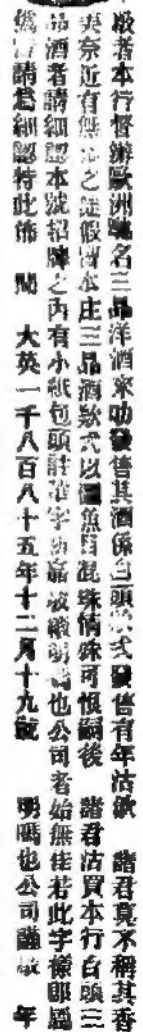 啟者本行督辦歐洲馳名三品洋酒來叻發售其酒係白頭欵式發售有年沽飲 諸君莫不稱其香
美奈近有無之徒假冒本庄三品酒欵式以圖魚目混珠情殊可恨嗣後 諸君沽買本行白頭三
品酒者請細認本號招牌之內有小紙包頭註字嘉波明嗎也公司者始無佳若此字樣即屬
偽請為細認特此佈 聞 大英一千八百八十五年十二月十九號 明嗎也公司謹啟 年